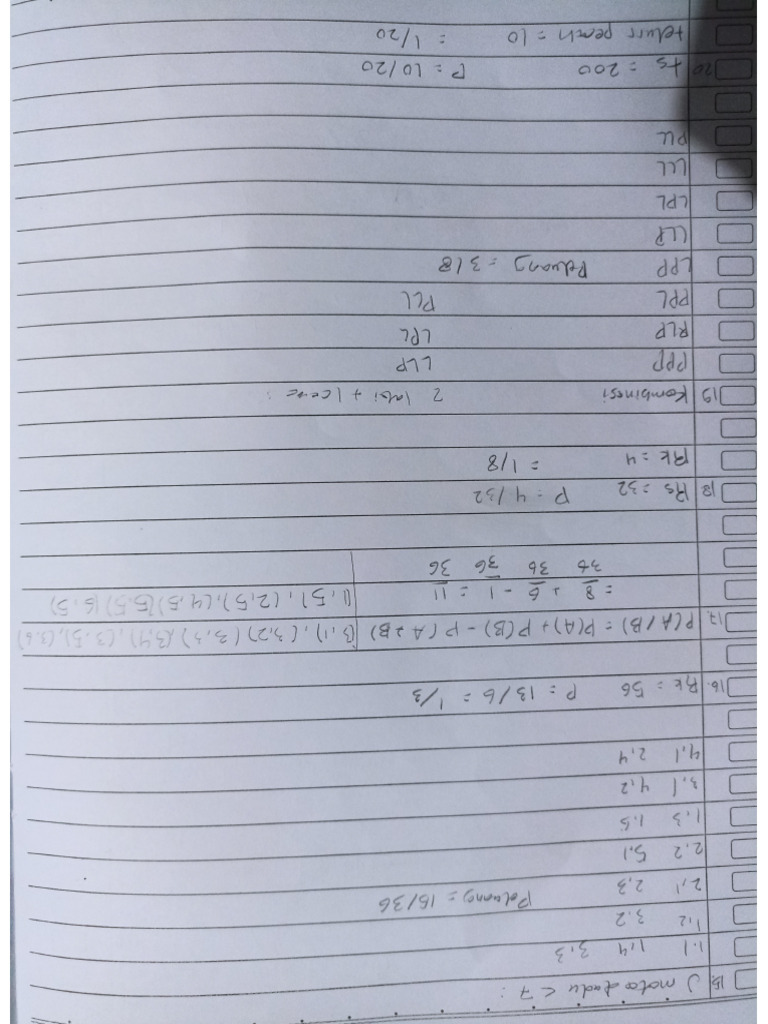 15. J mata dadu < 7 :
1.1 1,4 3,3
1,2 3.2
2,1 2,3 Peluang = 15/36
2.2 5.1
1.3 1.5
3,1 4,2
4,1 2,4
16. Rk = 56 P = 13/6 = 1/3
17. P(A/B) = P(A) + P(B) - P(A+B) (3,1), (3,2) (3,3) (3,4), (3.5), (3,6)
= 8/36 + 6/36 - 1/36 = 11/36 (1,5), (2,5), (4,5) (5,5) (6.5)
18 Rs = 32 P = 4/32
Rk = 4 = 1/8
19 Kombinasi 2 laki + 1 cewe :
PPP LLP
PLP LPL
PPL PLL
LPP Peluang = 3/8
LLP
LPL
LLL
PLL
20 ts = 200 P = 10/20
telurr pecah = 10 = 1/20